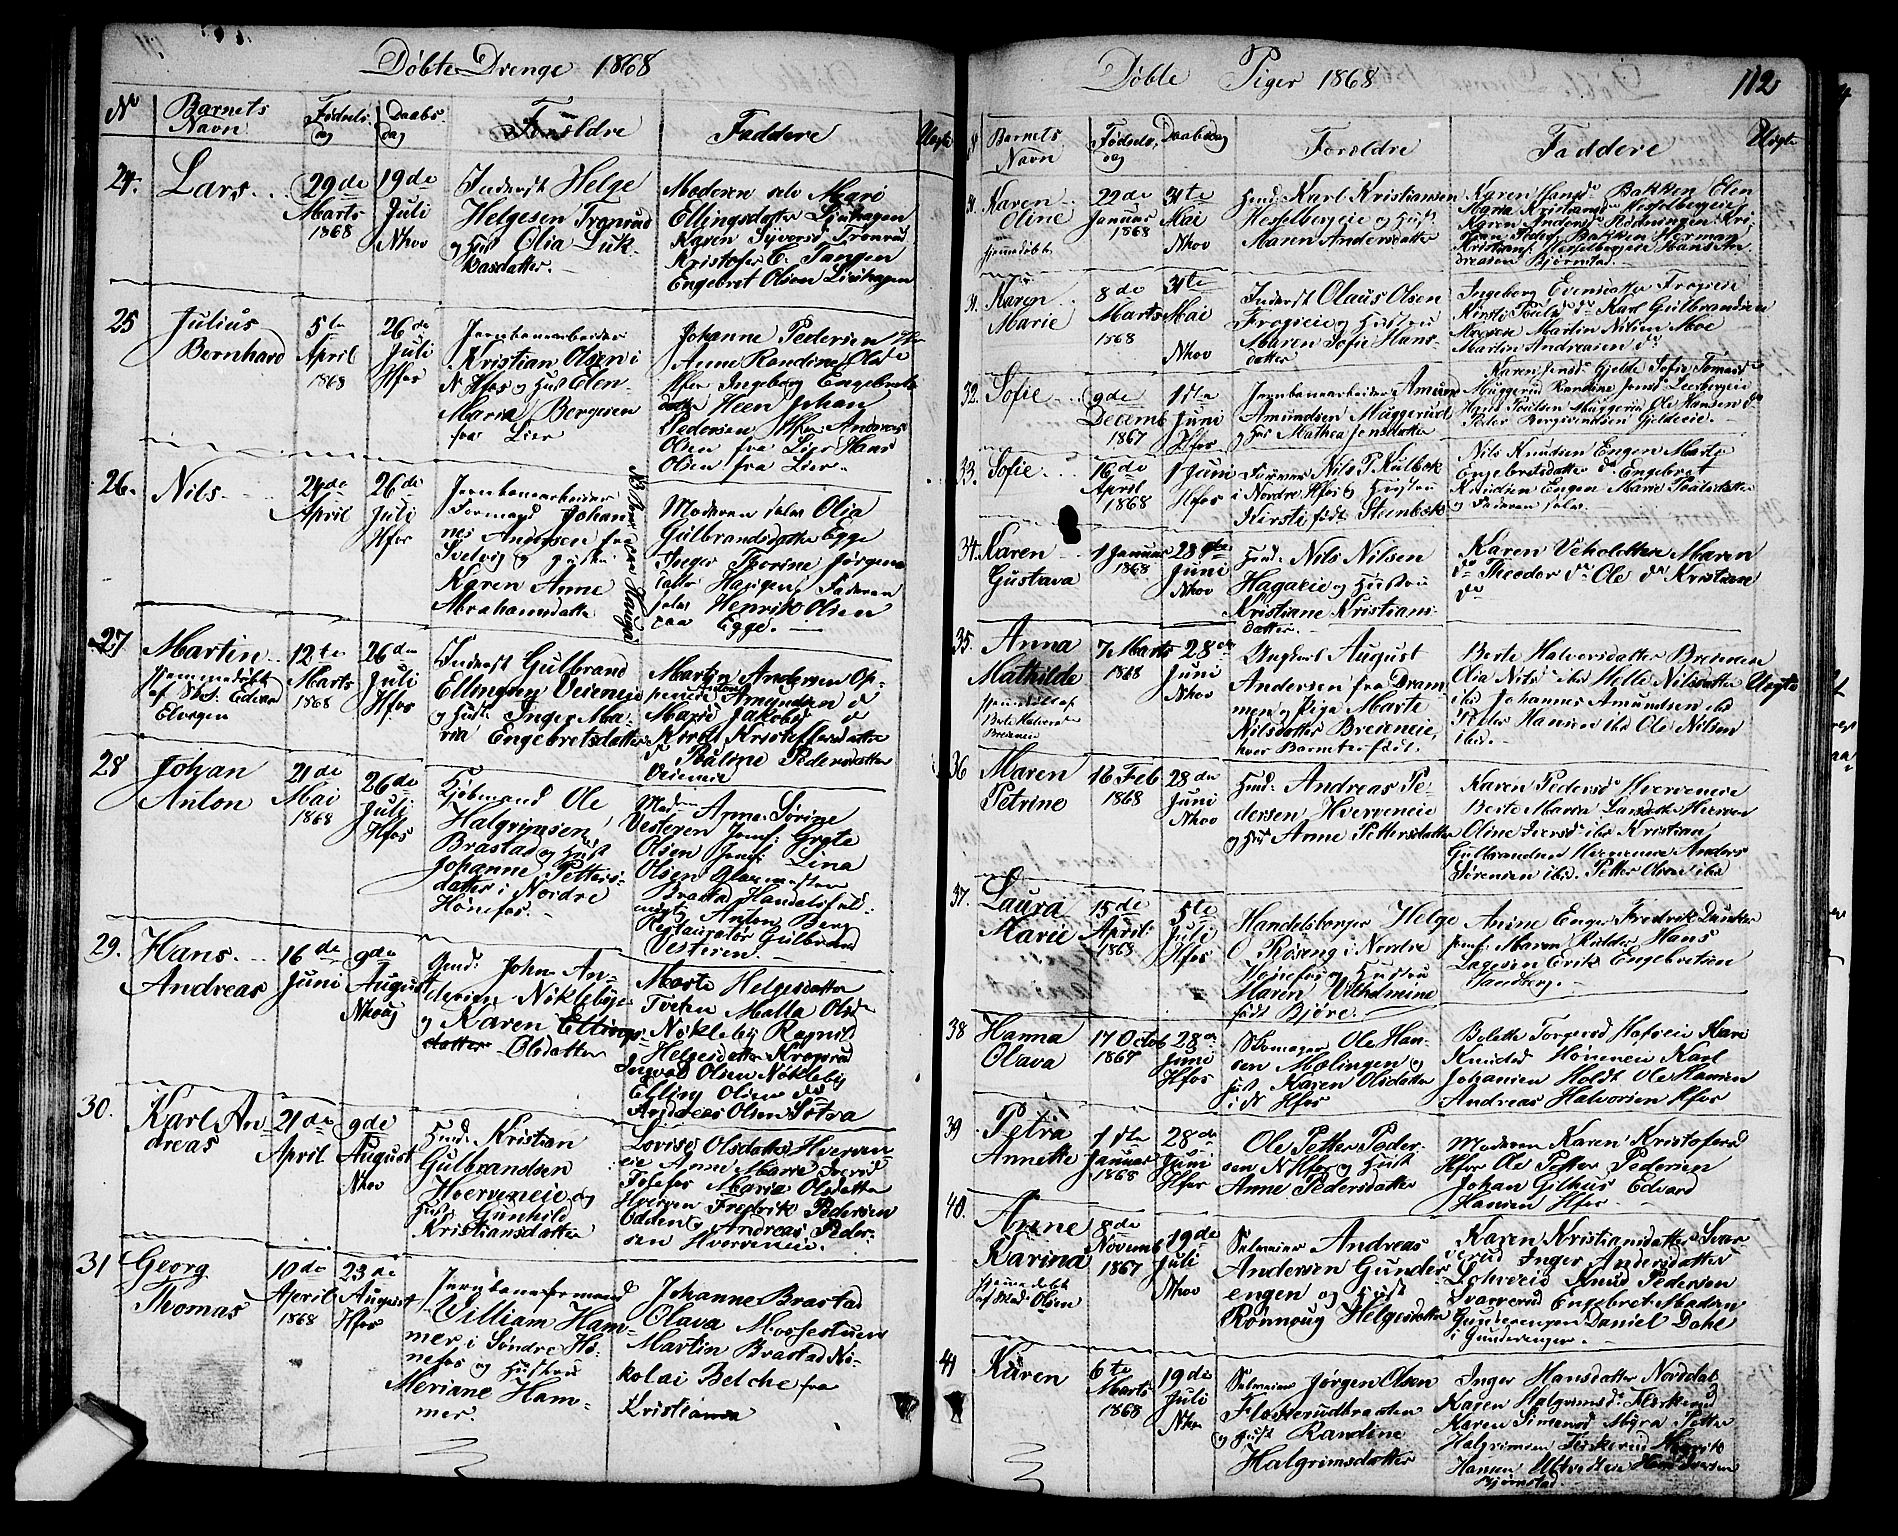 Døbte Drenge 1868
No Barnets Navn Fødselsdag Daabsdag Forældre Faddere Uægte
24. Lars
29de Marts 1868
19de Juli Nhov
Inderst Helge
Helgesen Tronrud
og Hust Olia Luk-
kasdatter.
Moderen selv Mari
Ellingsdatter
Karen Syversd Tronrud
Kristofer E. Tangen
Engebret Olsen
25 Julius
Bernhard
5te April 1868
26de Juli Hfos
Jernbanearbeider
Kristian Olsen i
N Hfos og Hust Elen
Maria Borgesen
fra Lier
Johanne Pedersen
Anne Randine Olsd
Hfos Ingeborg Engebrets
datter Heen Johan
Pedersen Hfos Andreas
Olsen fra Lier Hans
Olsen fra Lier
26. Nils
24de April
26de Juli Hfos
Jernbanearbeider
Formand Johan
nes Andersen fra
Svelvig og Hustru
Karen Anne
Abrahamsdatter
Moderen selv Olia
Gulbrandsdatter Egge
Inger Thorine Jørgens
datter Haugen Faderen
selv Henrik Olsen
paa Egge.
27 Martin
Hjemmedøbt
af Edvar
Elvegen
12te Marts 1868
26de Juli Hfos
Inderst Gulbrand
Ellingsen Veieneie
og Hust. Inger Ma-
ria Engebretsdatter
Martin Andersen Op-
peneie Amundsen d
Marie Jakobsd d
Kirsti Kristoffersdatter
d Pauline Pedersdatter
Veieneie
28 Johan
Anton
21de Mai 1868
26de Juli Hfos
Kjøbmand Ole
Halgrimsen
Brastad og Hust
Johanne Petters-
datter i Nordre
Hønefos.
Madm Anna Sørine
Vesteren Jomf. Grete
Olsen Jomf. Lina
Olsen Glasmester
Brastad Handelsfuld-
mægt. Anton Berg
Restauratør Gulbrand
Vesteren.
29. Hans
Andreas
16de Juni
9de August Nhov
Gmd: John An-
dersen Nikleby
og Karen Ellings
datter Olsdatter
Marte Helgesdatter
Tveten Malla Olsd
Nøkleby Ragnil
Helgesdatter
Olsen Nøkleby
Elling Olsen do
Andreas Olsen Sætra
30. Karl An
dreas
21de April
9de August Nhov
Hmd. Kristian
Gulbrandsen
Hverveneie og
Hust Gunhild
Kristiansdatter
Lovise Olsdatter Hverven-
eie Anne Marie Iversd
Maria Olsdatter
Hverven Fredrik Pedersen
Odden og Andreas Peder-
sen Hverveneie.
31 Georg
Thomas
10de April 1868
23de August Hfos
Jernbaneformand
Villiam Ham-
mer i Søndre Hø-
nefos og Hustru
Meriane Ham-
mer.
Johanne Brastad
Olava Mossestuen
Martin Brastad Ni-
kolai Belche fra
Kristiania
Døbte Piger 1868
112
No Barnets Navn Fødselsdag Daabsdag Forældre Faddere Uægte
Karen
Oline
hjemmedøbt
22de Januar 1868
31te Mai Nhov
Hmd. Karl Kristiansen
Hesselbergeie og Hust
Maren Andersdatter
Karen Hansd Bakken Elen
Maria Kristiansd Hesselbergeie
Karen Andersd Rødningen Kri-
stian Peders Bakken Herman
Kristians Hesselbergeie Hans An-
dreasen Bjørnstad.
31. Maren
Marie
8de Marts 1868
31te Mai Nhov
Inderst Olaus Olsen
Frogeie og Hustru
Maren Sofie Hans-
datter
Ingeborg Evensdatter Frogeie
Kirsti Poulsd do Karl Gulbrandsen
Moe Martin Nilsen Moe
Martin Andreasen do
32. Sofie
9de Decemb 1867
1ste Juni Hfos
Jernbanearbeider Amund
Amundsen Muggerud
og Hus Mathea Jensdatter
Karen Jensd Gjelde Sofie Tomasd
Muggerud Randine Jensd
Hans Poulsen Muggerud Ole Hansen do
Peder Gjeldeeie
33. Sofie
16de April 1868
1 Juni Hfos
Nils P. Kulbek
i Nordre Hfos og Hustru
Kirsti født Steenbek
Nils Knudsen Engen Marte
Engebretsdatter do Engebret
Knudsen Engen Marie Poulsdatter
og Faderen selv.
34. Karen
Gustava
1 Januar 1868
28de Juni Nhov
Hmd: Nils Nilsen
Hagaeie og Hustru
Kristiane Kristians-
datter.
Karen Maren
do Theodor do Ole do Kristiane
do
35. Anna
Mathilde
hjemmedøbt af
Berte Halvorsda
Breieneie
7 Marts 1868
28de Juni Nhov
Ungkarl August
Andersen fra Dram-
men og Pige Marte
Nilsdatter Breieneie,
hvor Barnet er født.
Berte Halversdatter Breieneie
Olia Nilsd ibd Helle Nilsdatter
ibd Johannes Amundsen ibd
Peder Hansen ibd Ole Nilsen
ibd.
Uægte
36 Maren
Petrine
16 Feb 1868
28de Juni Nhov
Hmd: Andreas Pe-
dersen Hverveneie
og Hus Anne Pettersdatter
Karen Pedersd Hverveneie
Berte Maria Larsdatter Hverven
Oline Iversd ibd Kristian
Gulbrandsen Hverveneie Anders
Sørensen ibd. Petter Olsen ibd
37. Laura
Marie
15de April 1868
5te Juli Hfos
Handelsborger Helge
O Røseng i Nordre
Hønefos og Hustru
Maren Vilhelmine
født Bjøre.
Anine Enger Fredrik Dunker
Jomf. Maren Ridder Hans
Lagesen Erik Engebretsen
Sandberg.
38 Hanna
Olava
17 Octob 1867
28de Juni Hfos
Skomager Ole Han-
sen Mælingen og
Hust. Karen Olsdatter
i N Hfos
Bolette Torgersd Hofseie Kari
Knudsd Hønen Karl
Johansen Holdt Ole Hansen
Andreas Halvorsen Hfos
39 Petra
Annette
1ste Januar 1868
28de Juni Hfos
Ole Petter Peder-
sen N Hfos og Hust
Anne Pedersdatter
Moderen Karen Kristofersd
Hfos Ole Petter Pedersen
Johan Gilhus Edvard
Hansen Hfos
40. Anne
Karina
hjemmedøbt
af Mad. Olsen
8de Novemb 1867
19de Juli Nhov
Selveier Andreas
Andersen Gunder
engen og Hust
Rønnoug Helgesdatter
Karen Kristiansdatter Svar
verud Inger Andersdatter
Knud Pedersen
Svarverud Engebret Madsen
Gunderengen Daniel Dahl
i Gunderengen.
41 Karen
6te Marts 1868
19de Juli Nhov
Selveier Jørgen Olsen
Fleskerudbraaten
og Hust Randine
Halgrimsdatter
Inger Hansdatter Norddal
Karen Halgrimsd Fleskerud
Karen Simensd Myra Petter
Halgrimsen Fleskerud Henrik
Hansen
Bjørnstad